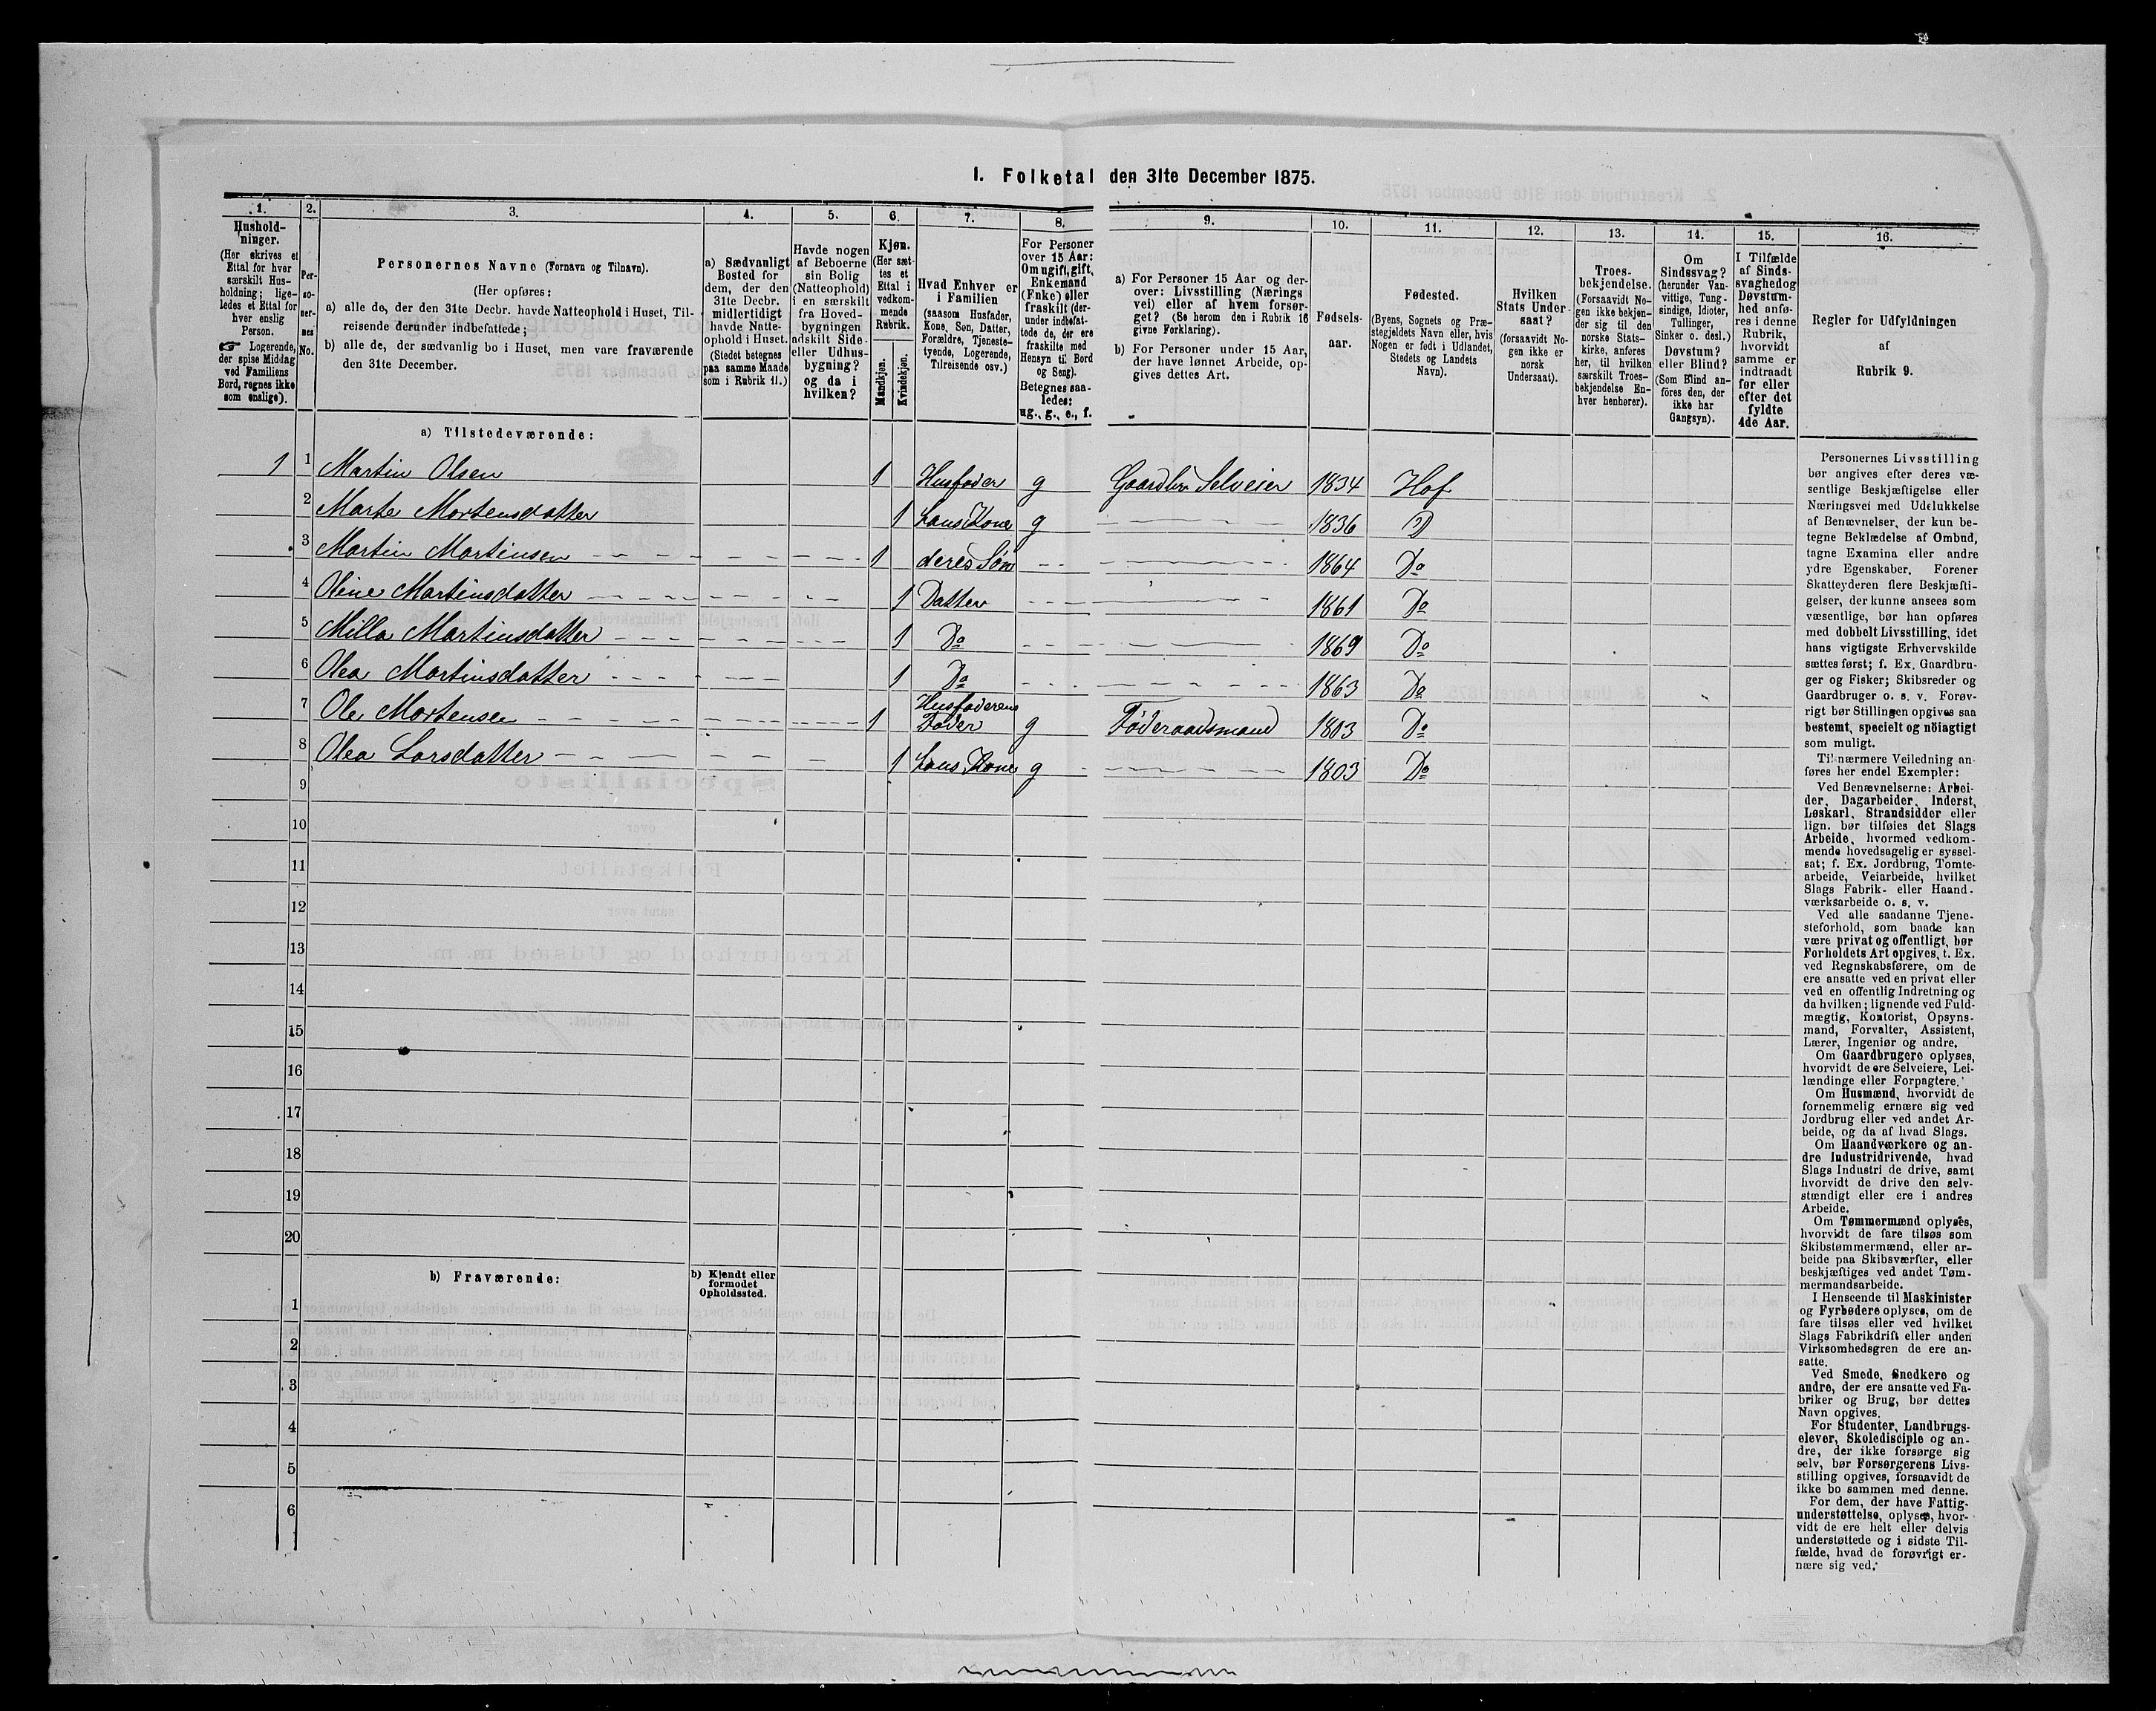 1. Folketal den 31te December 1875.
1. 2. 3. 4. 5. 6. 7. 8. 9. 10. 11. 12. 13. 14. 15. 16.
Hushold-
ninger.
(Her skrives et
Ettal for hver
særskilt Hus-
holdning; lige-
ledes et Ettal for
hver enslig
Person.
☞ Logerende,
der spise Middag
ved Familiens
Bord, regnes ikke
som enslige).
Per-
so-
ner-
nes
No.
Personernes Navne (Fornavn og Tilnavn).
(Her opføres:
a) alle de, der den 31te Decbr. havde Natteophold i Huset, Til-
reisende derunder indbefattede;
b) alle de, der sædvanlig bo i Huset, men vare fraværende
den 31te December.
a) Sædvanligt
Bosted for
dem, der den
31te Decbr.
midlertidigt
havde Natte-
ophold i Huset.
(Stedet betegnes
paa samme Maade
som i Rubrik 11.)
Havde nogen
af Beboerne
sin Bolig
(Natteophold)
i en særskilt
fra Hoved-
bygningen
adskilt Side-
eller Udhus-
bygning?
og da i
hvilken?
Kjøn.
(Her sæt-
tes et
Ettal i
vedkom-
mende
Rubrik.
Mandkjøn.
Kvindekjøn.
Hvad Enhver er
i Familien
(saasom Husfader,
Kone, Søn, Datter,
Forældre, Tjeneste-
tyende, Logerende,
Tilreisende osv.)
For Personer
over 15 Aar:
Om ugift, gift,
Enkemand
(Enke) eller
fraskilt (der-
under indbefat-
tede de, der ere
fraskilte med
Hensyn til Bord
og Seng).
Betegnes saa-
ledes:
ug., g., e., f.
a) For Personer 15 Aar og der-
over: Livsstilling (Nærings
vei) eller af hvem forsør-
get? (Se herom den i Rubrik 16
givne Forklaring).
b) For Personer under 15 Aar,
der have lønnet Arbeide, op-
gives dettes Art.
Fødsels-
aar.
Fødested.
(Byens, Sognets og Præ-
stegjeldets Navn eller, hvis
Nogen er født i Udlandet,
Stedets og Landets
Navn).
Hvilken
Stats Under-
saat?
(forsaavidt No-
gen ikke er
norsk
Undersaat).
Troes-
bekjendelse.
(Forsaavidt No-
gen ikke bekjen-
der sig til den
norske Stats-
kirke, anføres
her, til hvilken
særskilt Troes-
bekjendelse En-
hver henhører).
Om
Sindssvag?
(herunder Van-
vittige, Tung-
sindige, Idioter,
Tullinger,
Sinker o. desl.)
Døvstum?
eller Blind?
(Som Blind an-
føres den, der
ikke har
Gangsyn).
I Tilfælde
af Sinds-
svaghed og
Døvstum-
hed anfø-
res i denne
Rubrik,
hvorvidt
samme er
indtraadt
før eller
efter det
fyldte
4de Aar.
Regler for Udfyldningen
af
Rubrik 9.
a) Tilstedeværende:
1 1 Martin Olsen 1 Husfader g Gaardbr. Selveier 1834 Hof
2 Marte Mortensdatter 1 hans Kone g 1836 D
3 Martin Martinsen 1 deres Søn 1864 Do
4 Oline Martinsdatter 1 Datter 1861 Do
5 Milla Martinsdatter 1 Do 1869 Do
6 Olea Martinsdatter 1 Do 1863 Do
7 Ole Mortensen 1 Husfaderens Fader g Føderaadsmand 1803 Do
8 Olea Larsdatter 1 hans Kone g 1803 Do
9
10
11
12
13
14
15
16
17
18
19
20
b) Fraværende:
b) Kjendt eller
formodet
Opholdssted.
1
2
3
4
5
6
Personernes Livsstilling
bør angives efter deres væ-
sentlige Beskjæftigelse eller
Næringsvei med Udelukkelse
af Benævnelser, der kun be-
tegne Beklædelse af Ombud,
tagne Examina eller andre
ydre Egenskaber. Forener
Skatteyderen flere Beskjæfti-
gelser, der kunne ansees som
væsentlige, bør han opføres
med dobbelt Livsstilling, idet
hans vigtigste Erhvervskilde
sættes først; f. Ex. Gaardbru-
ger og Fisker; Skibsreder og
Gaardbruger o. s. v. Forøv-
rigt bør Stillingen opgives saa
bestemt, specielt og nöiagtigt
som muligt.
Til nærmere Veiledning an-
føres her endel Exempler:
Ved Benævnelserne: Arbei-
der, Dagarbeider, Inderst,
Løskarl, Strandsidder eller
lign. bør tilføies det Slags
Arbeide, hvormed vedkom-
mende hovedsagelig er syssel-
sat; f. Ex. Jordbrug, Tomte-
arbeide, Veiarbeide, hvilket
Slags Fabrik- eller Haand-
værksarbeide o. s. v.
Ved alle saadanne Tjene-
steforhold, som baade kan
være privat og offentligt, bør
Forholdets Art opgives, t. Ex.
ved Regnskabsførere, om de
ere ansatte ved en privat eller
ved en offentlig Indretning og
da hvilken; lignende ved Fuld-
mægtig, Kontorist, Opsyns-
mand, Forvalter, Assistent,
Lærer, Ingeniør og andre.
Om Gaardbrugere oplyses,
hvorvidt de ere Selveiere, Lei-
lændinge eller Forpagtere.
Om Husmænd, hvorvidt de
fornemmelig ernære sig ved
Jordbrug eller ved andet Ar-
beide, og da af hvad Slags.
Om Haandværkere og an-
dre Industridrivende, hvad
Slags Industri de drive, samt
hvorvidt de drive den selv-
stændigt eller ere i andres
Arbeide.
Om Tømmermænd oplyses,
hvorvidt de fare tilsøs som
Skibstømmermænd, eller ar-
beide paa Skibsværfter, eller
beskjæftiges ved andet Tøm-
mermandsarbeide.
I Henseende til Maskinister
og Fyrbødere oplyses, om de
fare tilsøs eller ved hvilket
Slags Fabrikdrift eller anden
Virksomhedsgren de ere an-
satte.
Ved Smede, Snedkere og
andre, der ere ansatte ved Fa-
briker og Brug, bør dettes
Navn opgives.
For Studenter, Landbrugs-
elever, Skoledisciple og an-
dre, der ikke forsørge sig
selv, bør Forsørgerens Livs-
stilling opgives, forsaavidt de
ikke bo sammen med denne.
For dem, der have Fattig-
understøttelse, oplyses, hvor-
vidt de ere helt eller delvis
understøttede og i sidste Til-
fælde, hvad de forøvrigt er-
nære sig ved.